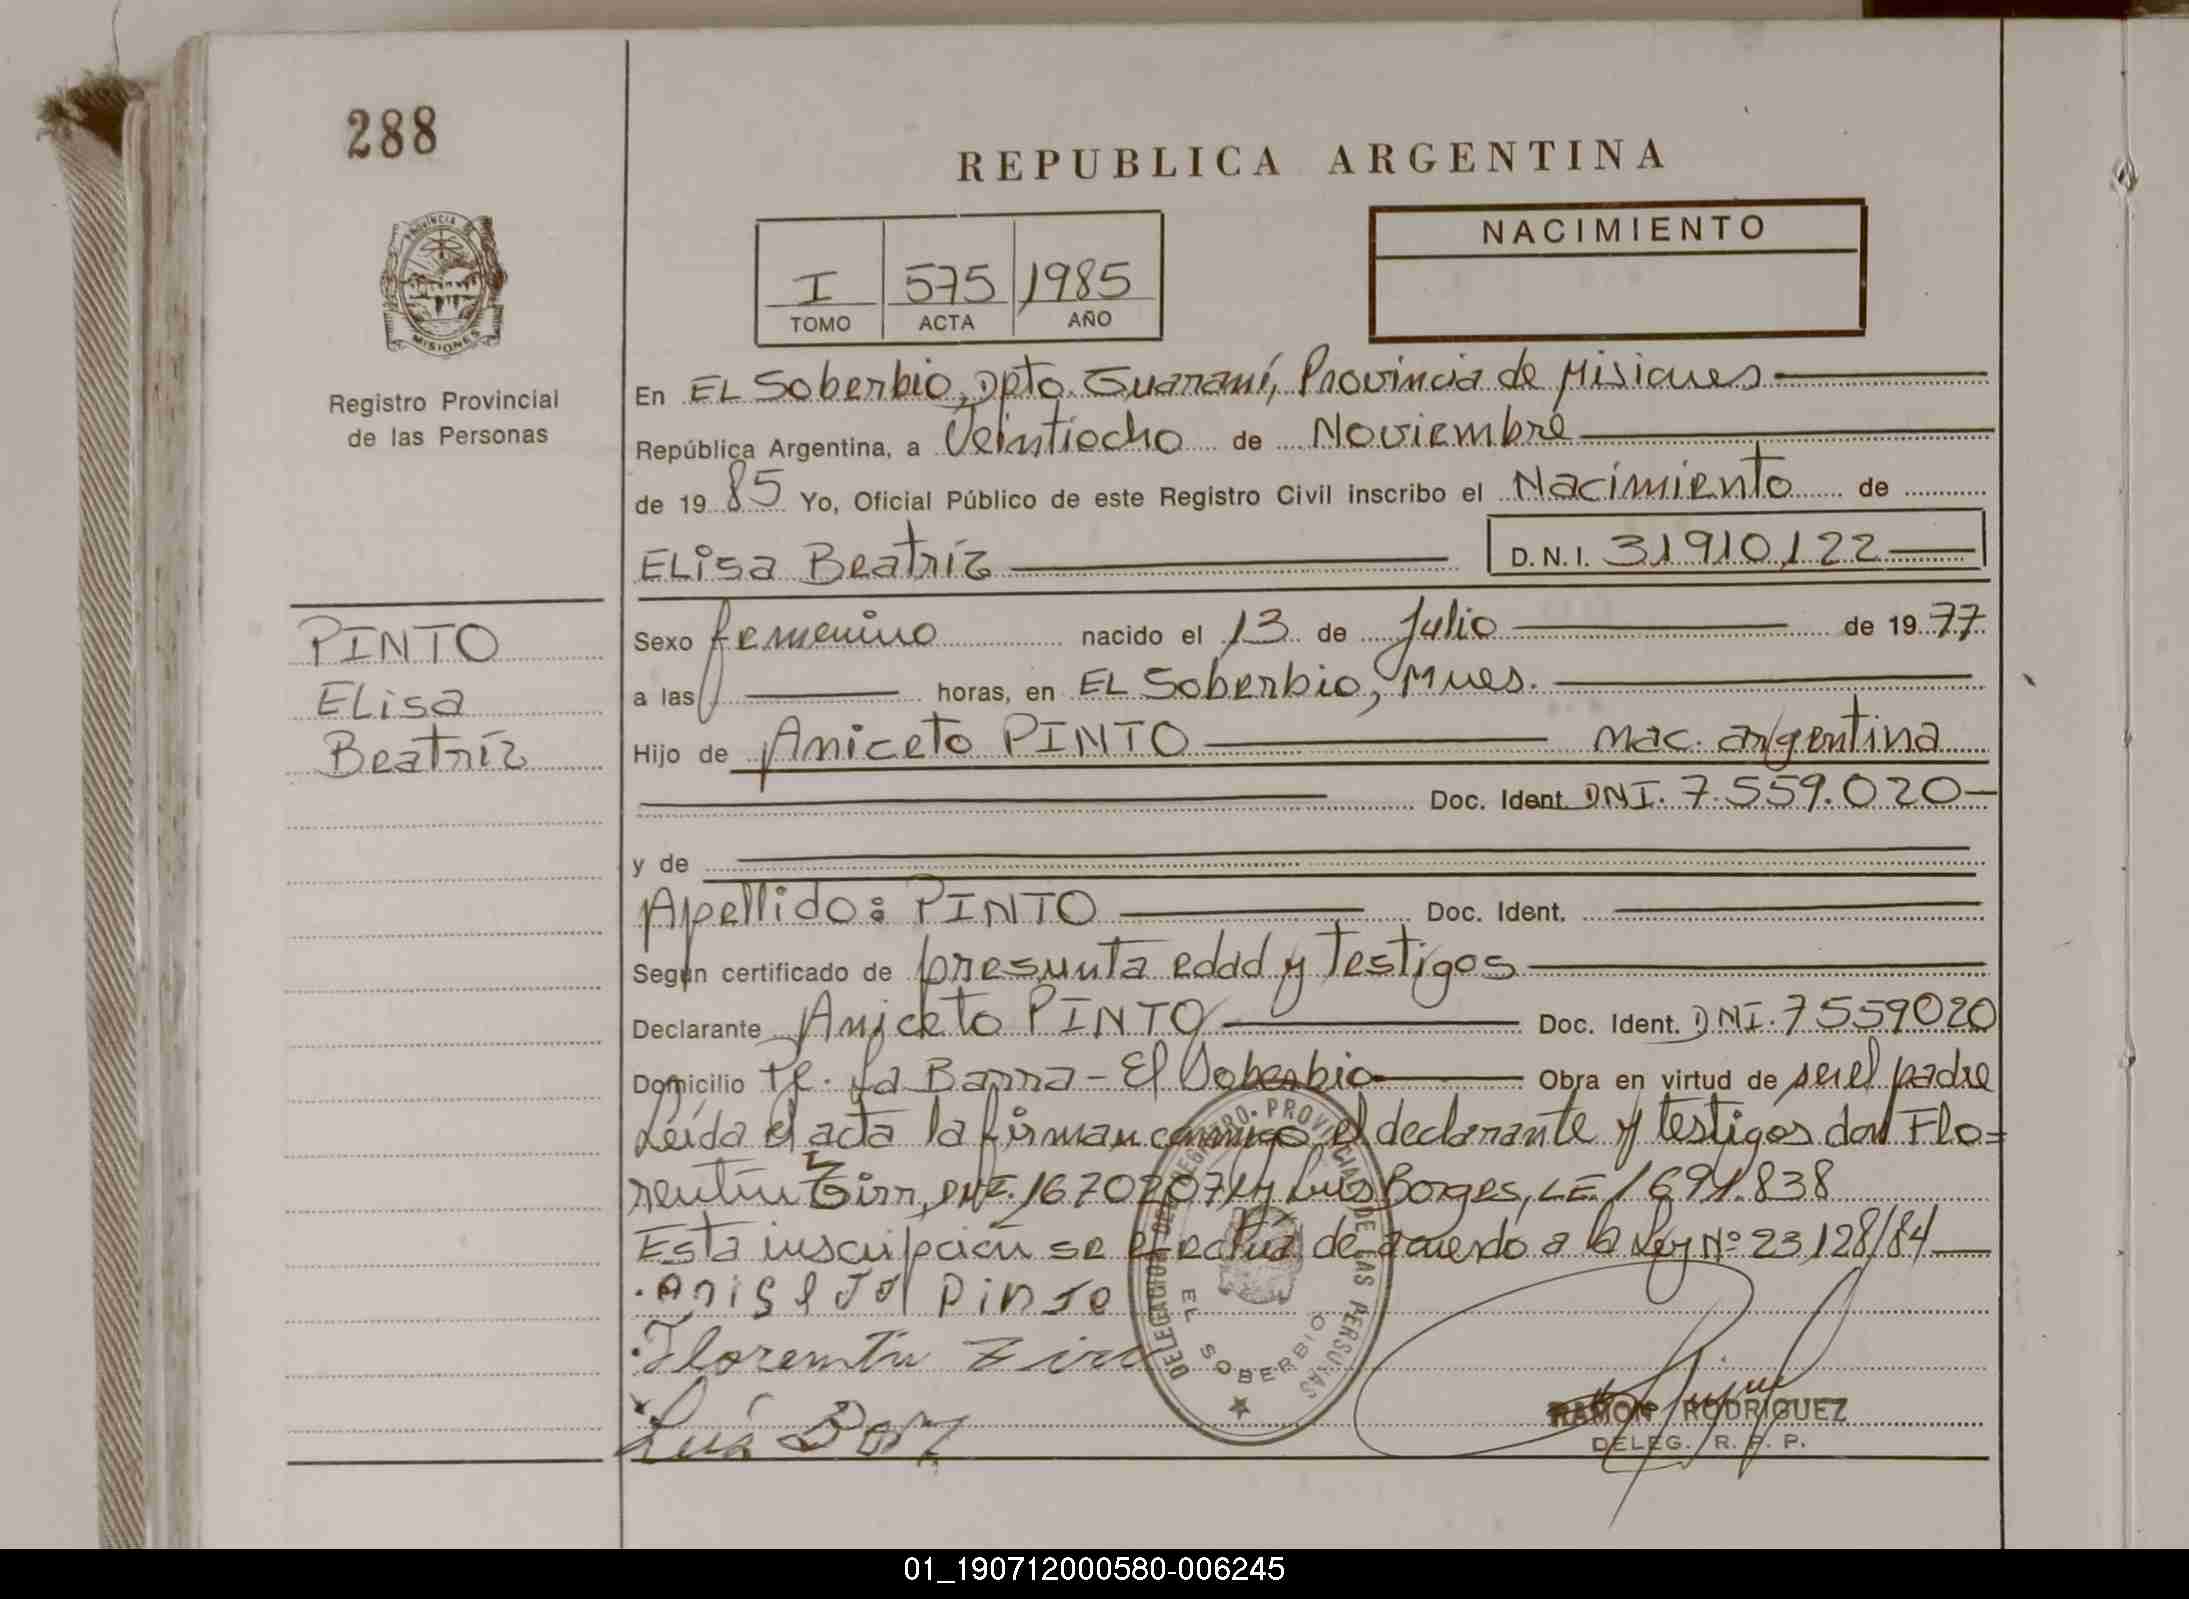 288
REPUBLICA ARGENTINA
PROVINCIA DE
MISIONES
Registro Provincial
de las Personas
I 575 1985
TOMO ACTA AÑO
NACIMIENTO
En EL Soberbio, Dpto. Guaraní, Provincia de Misiones
República Argentina, a Veintiocho de Noviembre
de 19 85 Yo, Oficial Público de este Registro Civil inscribo el Nacimiento de
ELisa Beatríz D.N.I. 31910122
PINTO
ELisa
Beatríz
Sexo femenino nacido el 13 de Julio de 19 77
a las horas, en EL Soberbio, Mnes.
Hijo de Aniceto PINTO nac. argentina
Doc. Ident. DNI. 7.559.020
y de
Apellido: PINTO Doc. Ident.
Según certificado de presunta edad y testigos
Declarante Aniceto PINTO Doc. Ident. DNI. 7559020
Domicilio La Barra - El Soberbio Obra en virtud de ser el padre
Leída el acta la firman conmigo, el declarante y testigos don Flo=
rentín Zirr, DNI. 16702071 y Luis Borges, L.E. 1691.838
Esta inscripción se efectúa de acuerdo a la Ley Nº 23128/84
Pinto
Florentin
Luis
DELEGACION DEL REGISTRO PROVINCIAL DE LAS PERSONAS
EL SOBERBIO
RAMON RODRIGUEZ
DELEG. R. P. P.
01_190712000580-006245